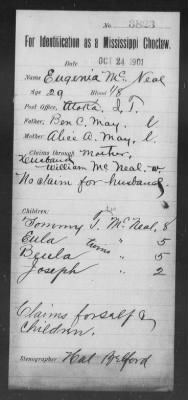 No. 3823
For Identification as a Mississippi Choctaw.
Date OCT 24 1901
Name Eugenia Mc Neal
Age 29 Blood 1/8
Post Office, Atoka, I. T.
Father, Ben C. May, l.
Mother, Alice A. May, l.
Claims through Mother,
Husband
William Mc Neal. w
No claim for husband.
Children:
Tommy J. Mc Neal. 8
Eula twins " 5
Beula " 5
Joseph " 2
Claims for self &
children.
Stenographer Hal Belford